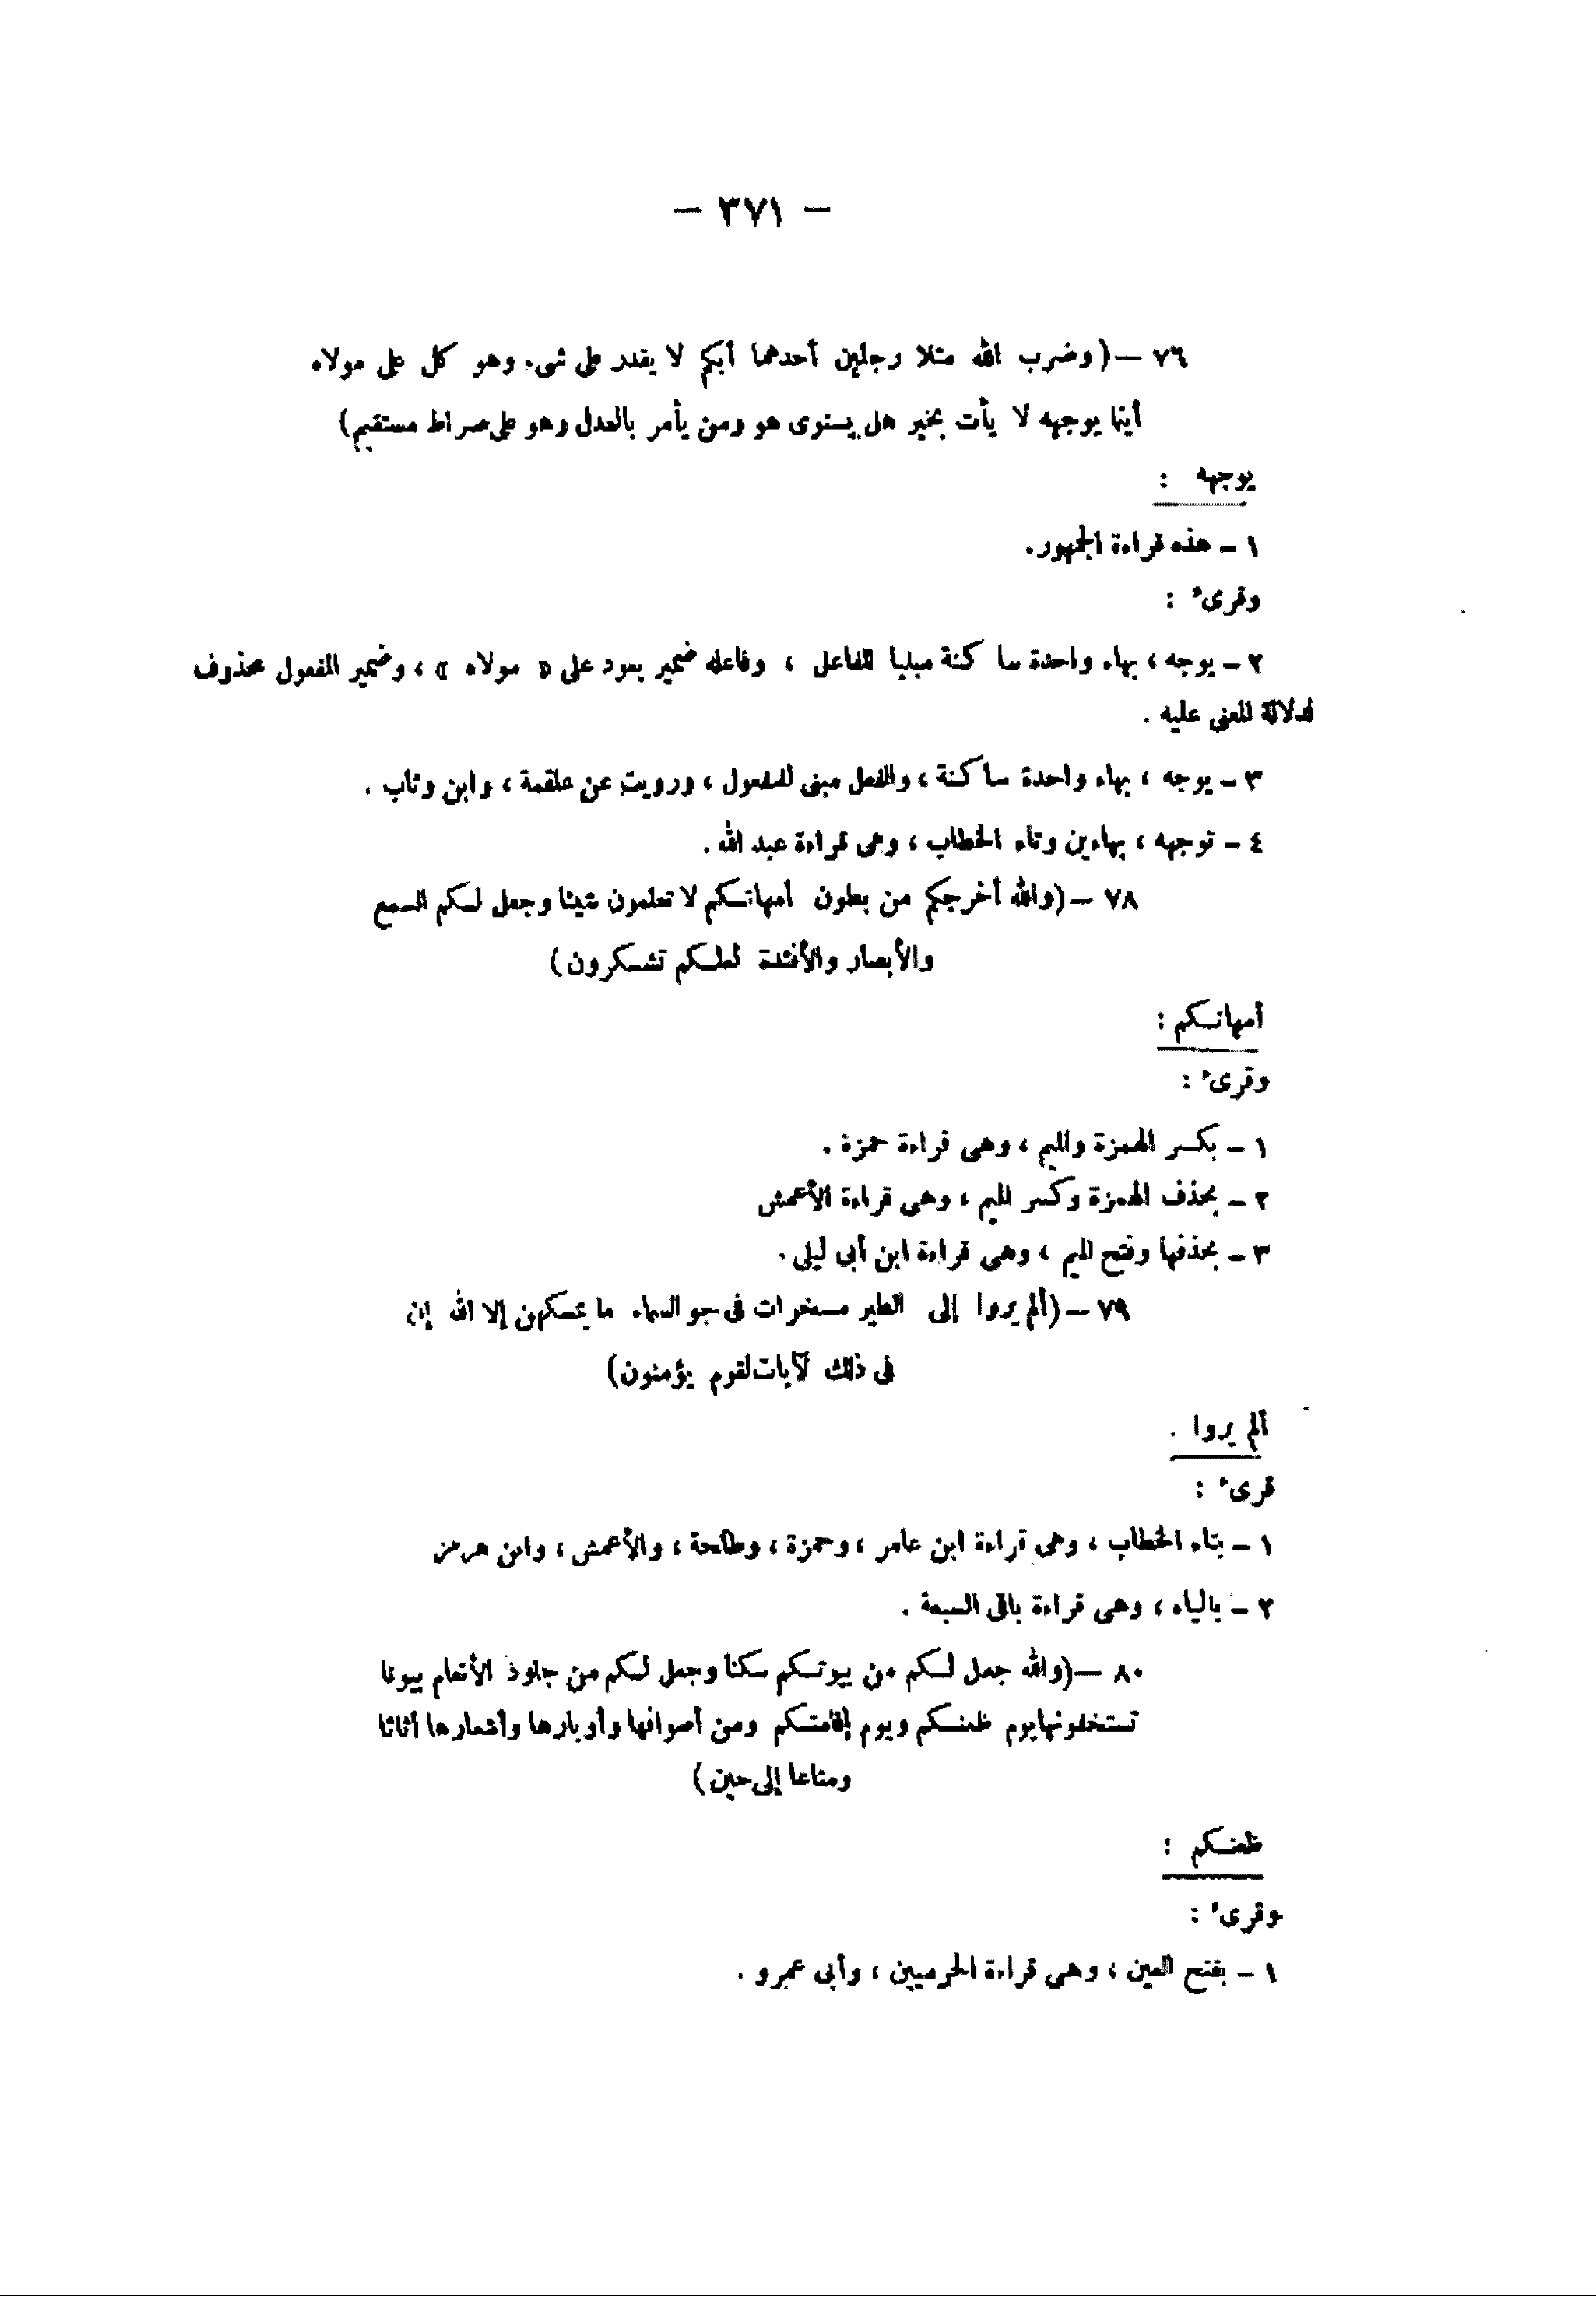 — ٣٧١ —
٧٦ — ( وضرب الله مثلا رجلين أحدهما أبكم لا يقدر على شىء وهو كل على مولاه
أينما يوجهه لا يأت بخير هل يستوى هو ومن يأمر بالعدل وهو على صراط مستقيم )
يوجهه :
١ - هذه قراءة الجمهور .
وقرىء :
٢ - يوجه ، بهاء واحدة ساكنة مبنيا للفاعل ، وفاعله ضمير يعود على « مولاه » ، وضمير المفعول محذوف
لدلالة المعنى عليه .
٣ - يوجه ، بهاء واحدة ساكنة ، والفعل مبنى للمفعول ، ورويت عن علقمة ، وابن وثاب .
٤ - توجهه ، بهاءين وتاء الخطاب ، وهى قراءة عبد الله .
٧٨ — ( والله أخرجكم من بطون أمهاتكم لا تعلمون شيئا وجعل لكم السمع
والأبصار والأفئدة لعلكم تشكرون )
أمهاتكم :
وقرىء :
١ - بكسر الهمزة والميم ، وهى قراءة حمزة .
٢ - بحذف الهمزة وكسر الميم ، وهى قراءة الأعمش
٣ - بحذفها وفتح الميم ، وهى قراءة ابن أبى ليلى .
٧٩ — ( ألم يروا إلى الطير مسخرات فى جو السماء ما يمسكهن إلا الله إن
فى ذلك لآيات لقوم يؤمنون )
ألم يروا .
قرىء :
١ - بتاء الخطاب ، وهى قراءة ابن عامر ، وحمزة ، وطلحة ، والأعمش ، وابن هرمز
٢ - بالياء ، وهى قراءة باقى السبعة .
٨٠ — ( والله جعل لكم من بيوتكم سكنا وجعل لكم من جلود الأنعام بيوتا
تستخفونها يوم ظعنكم ويوم إقامتكم ومن أصوافها وأوبارها وأشعارها أثاثا
ومتاعا إلى حين )
ظعنكم :
وقرىء :
١ - بفتح العين ، وهى قراءة الحرميين ، وأبى عمرو .